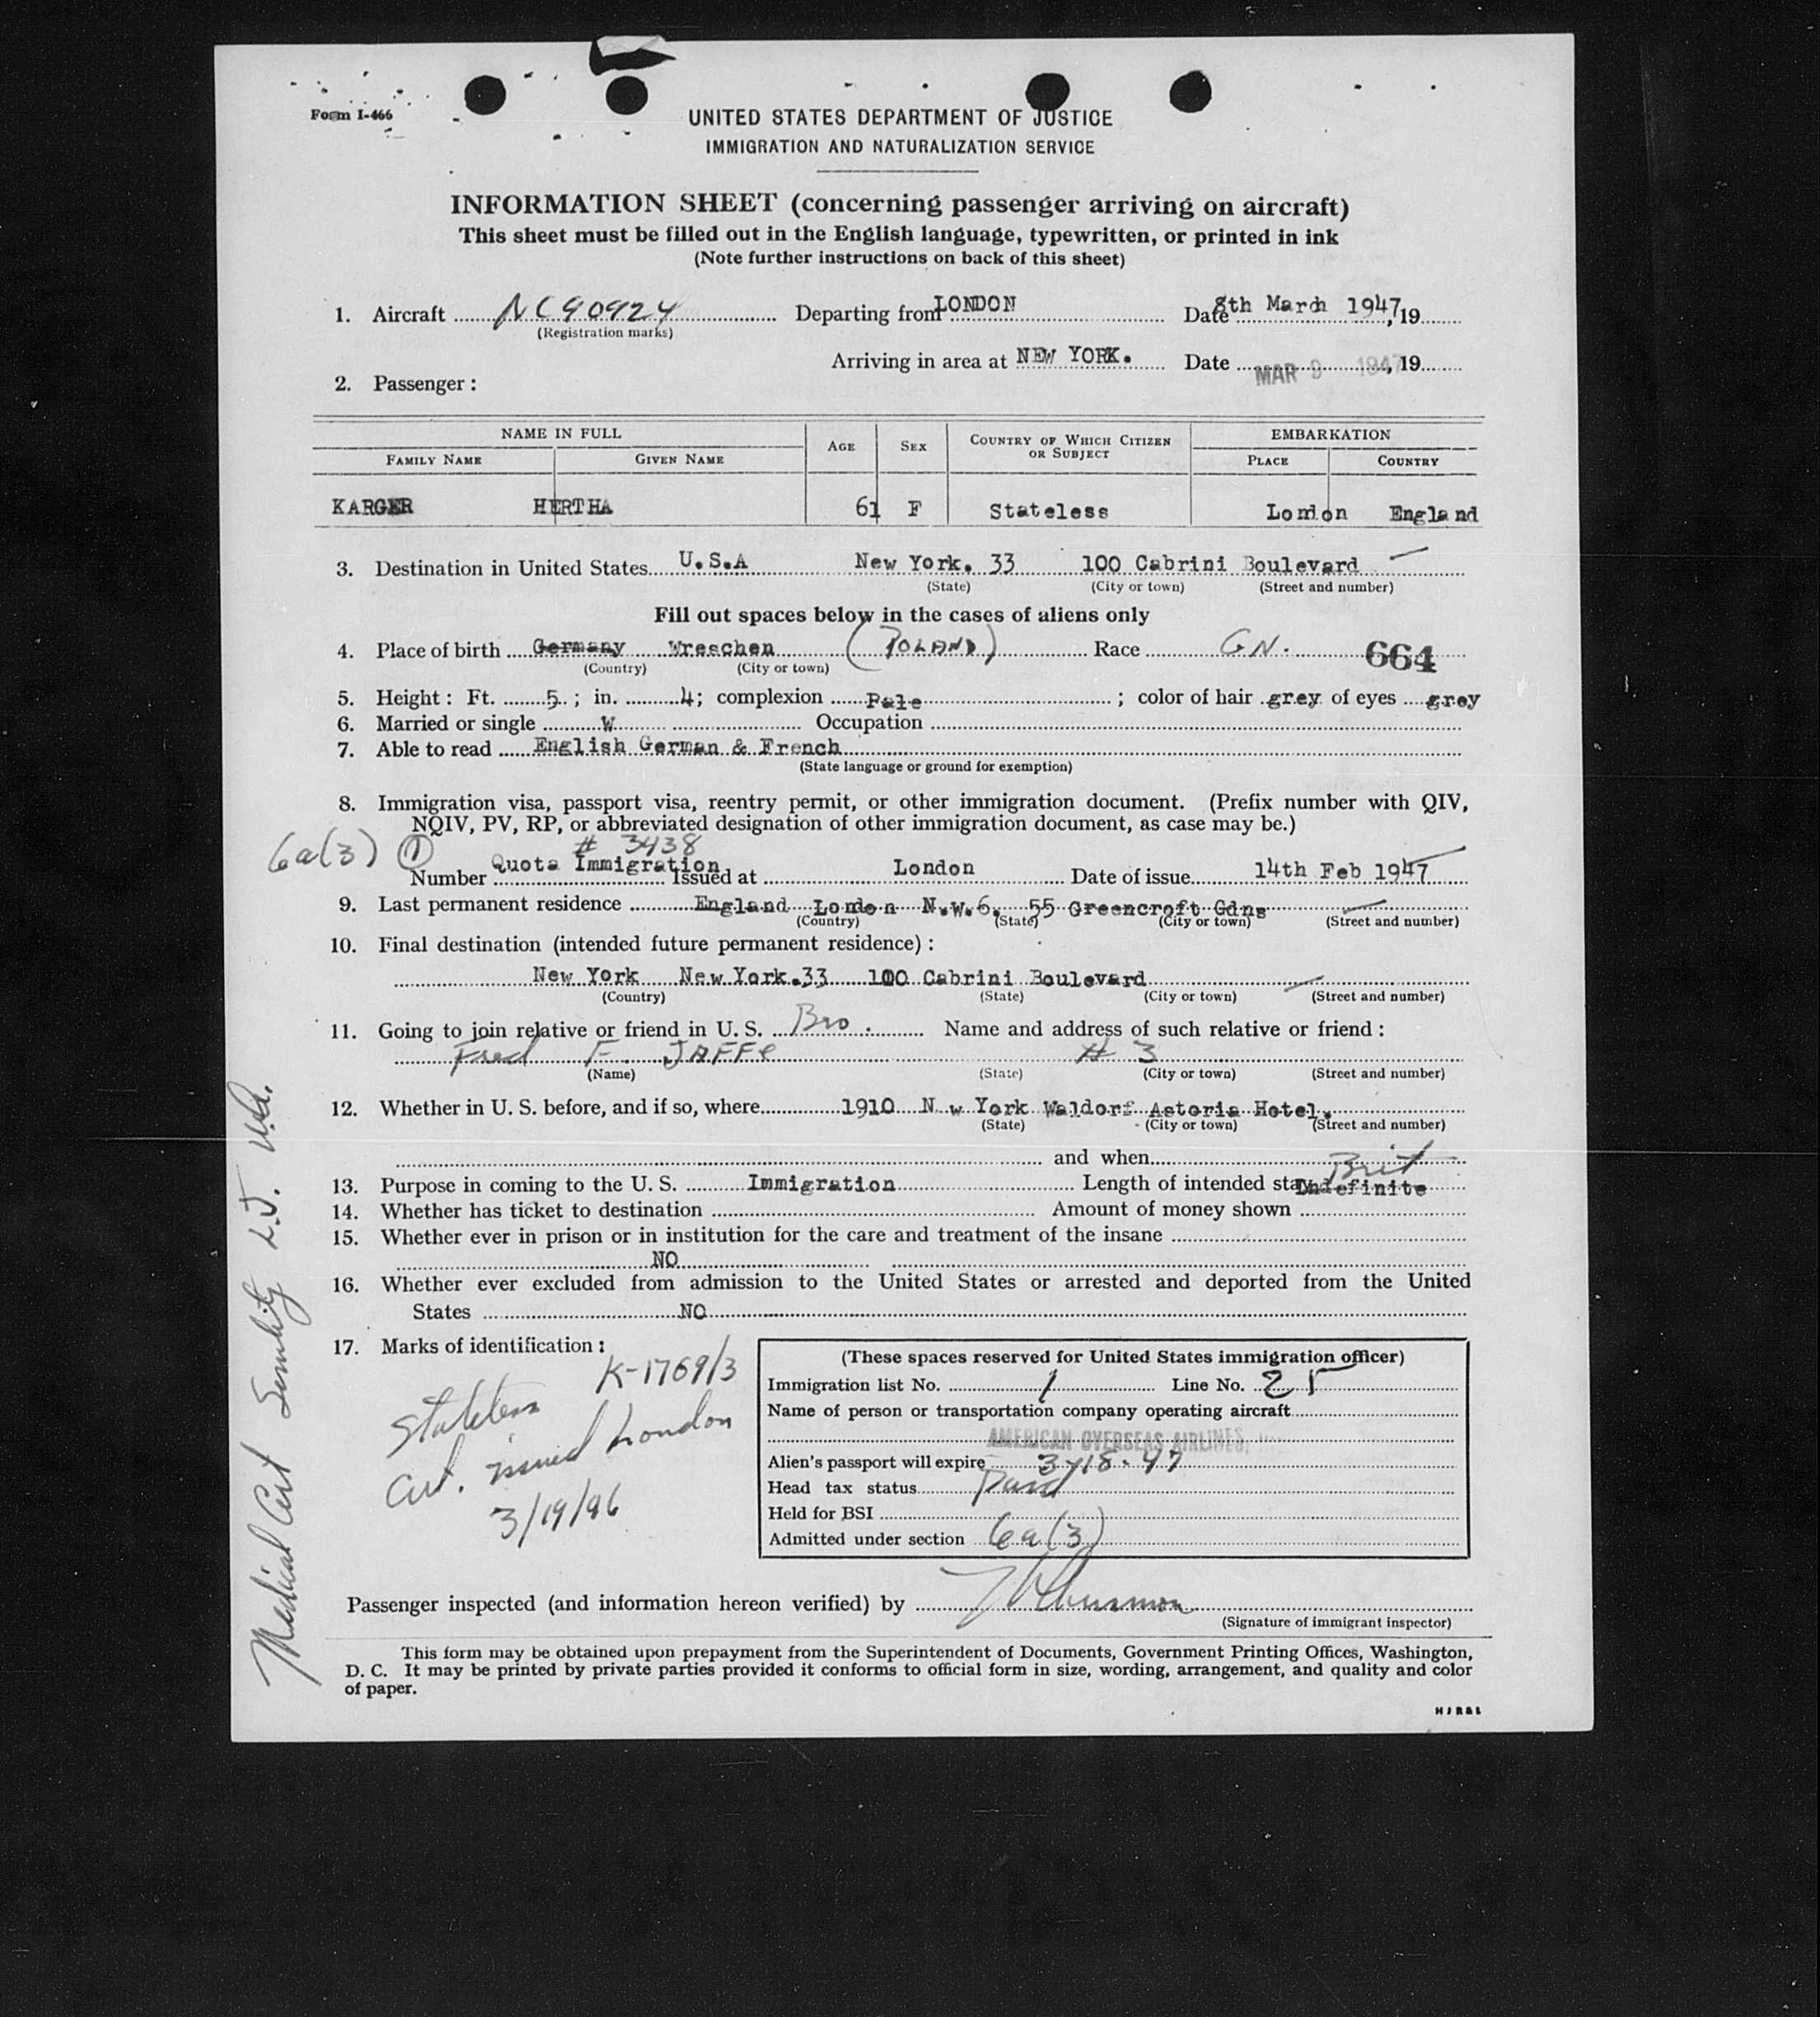 Form I-466
UNITED STATES DEPARTMENT OF JUSTICE
IMMIGRATION AND NATURALIZATION SERVICE
INFORMATION SHEET (concerning passenger arriving on aircraft)
This sheet must be filled out in the English language, typewritten, or printed in ink
(Note further instructions on back of this sheet)
1. Aircraft NC90924 Departing from LONDON Date 8th March 1947, 19
(Registration marks)
Arriving in area at NEW YORK. Date MAR 9 1947, 19
2. Passenger :
NAME IN FULL AGE SEX COUNTRY OF WHICH CITIZEN OR SUBJECT EMBARKATION
FAMILY NAME GIVEN NAME PLACE COUNTRY
KARGER HERTHA 61 F Stateless London England
3. Destination in United States U.S.A New York. 33 100 Cabrini Boulevard
(State) (City or town) (Street and number)
Fill out spaces below in the cases of aliens only
4. Place of birth Germany Wreschen (POLAND) Race GN. 664
(Country) (City or town)
5. Height : Ft. 5 ; in. 4; complexion Pale ; color of hair grey of eyes grey
6. Married or single W Occupation
7. Able to read English German & French
(State language or ground for exemption)
8. Immigration visa, passport visa, reentry permit, or other immigration document. (Prefix number with QIV,
NQIV, PV, RP, or abbreviated designation of other immigration document, as case may be.)
6a(3) 1 # 3438
Number Quota Immigration Issued at London Date of issue 14th Feb 1947
9. Last permanent residence England London N.W.6. 55 Greencroft Gdns
(Country) (State) (City or town) (Street and number)
10. Final destination (intended future permanent residence) :
New York New York.33 100 Cabrini Boulevard
(Country) (State) (City or town) (Street and number)
11. Going to join relative or friend in U. S. Bro. Name and address of such relative or friend :
Fred F. JAFFe # 3
(Name) (State) (City or town) (Street and number)
12. Whether in U. S. before, and if so, where 1910 N w York Waldorf Astoria Hotel.
(State) (City or town) (Street and number)
and when
Brit
13. Purpose in coming to the U. S. Immigration Length of intended stay Indefinite
14. Whether has ticket to destination Amount of money shown
15. Whether ever in prison or in institution for the care and treatment of the insane
NO
16. Whether ever excluded from admission to the United States or arrested and deported from the United
States NO
17. Marks of identification :
K-1769/3
Stateless
Cert. issued London
3/19/46
(These spaces reserved for United States immigration officer)
Immigration list No. 1 Line No. 25
Name of person or transportation company operating aircraft
AMERICAN OVERSEAS AIRLINES,
Alien's passport will expire 3-18-47
Head tax status Paid
Held for BSI
Admitted under section 6a(3)
Passenger inspected (and information hereon verified) by
(Signature of immigrant inspector)
This form may be obtained upon prepayment from the Superintendent of Documents, Government Printing Offices, Washington,
D. C. It may be printed by private parties provided it conforms to official form in size, wording, arrangement, and quality and color
of paper.
Medical Cert Senility